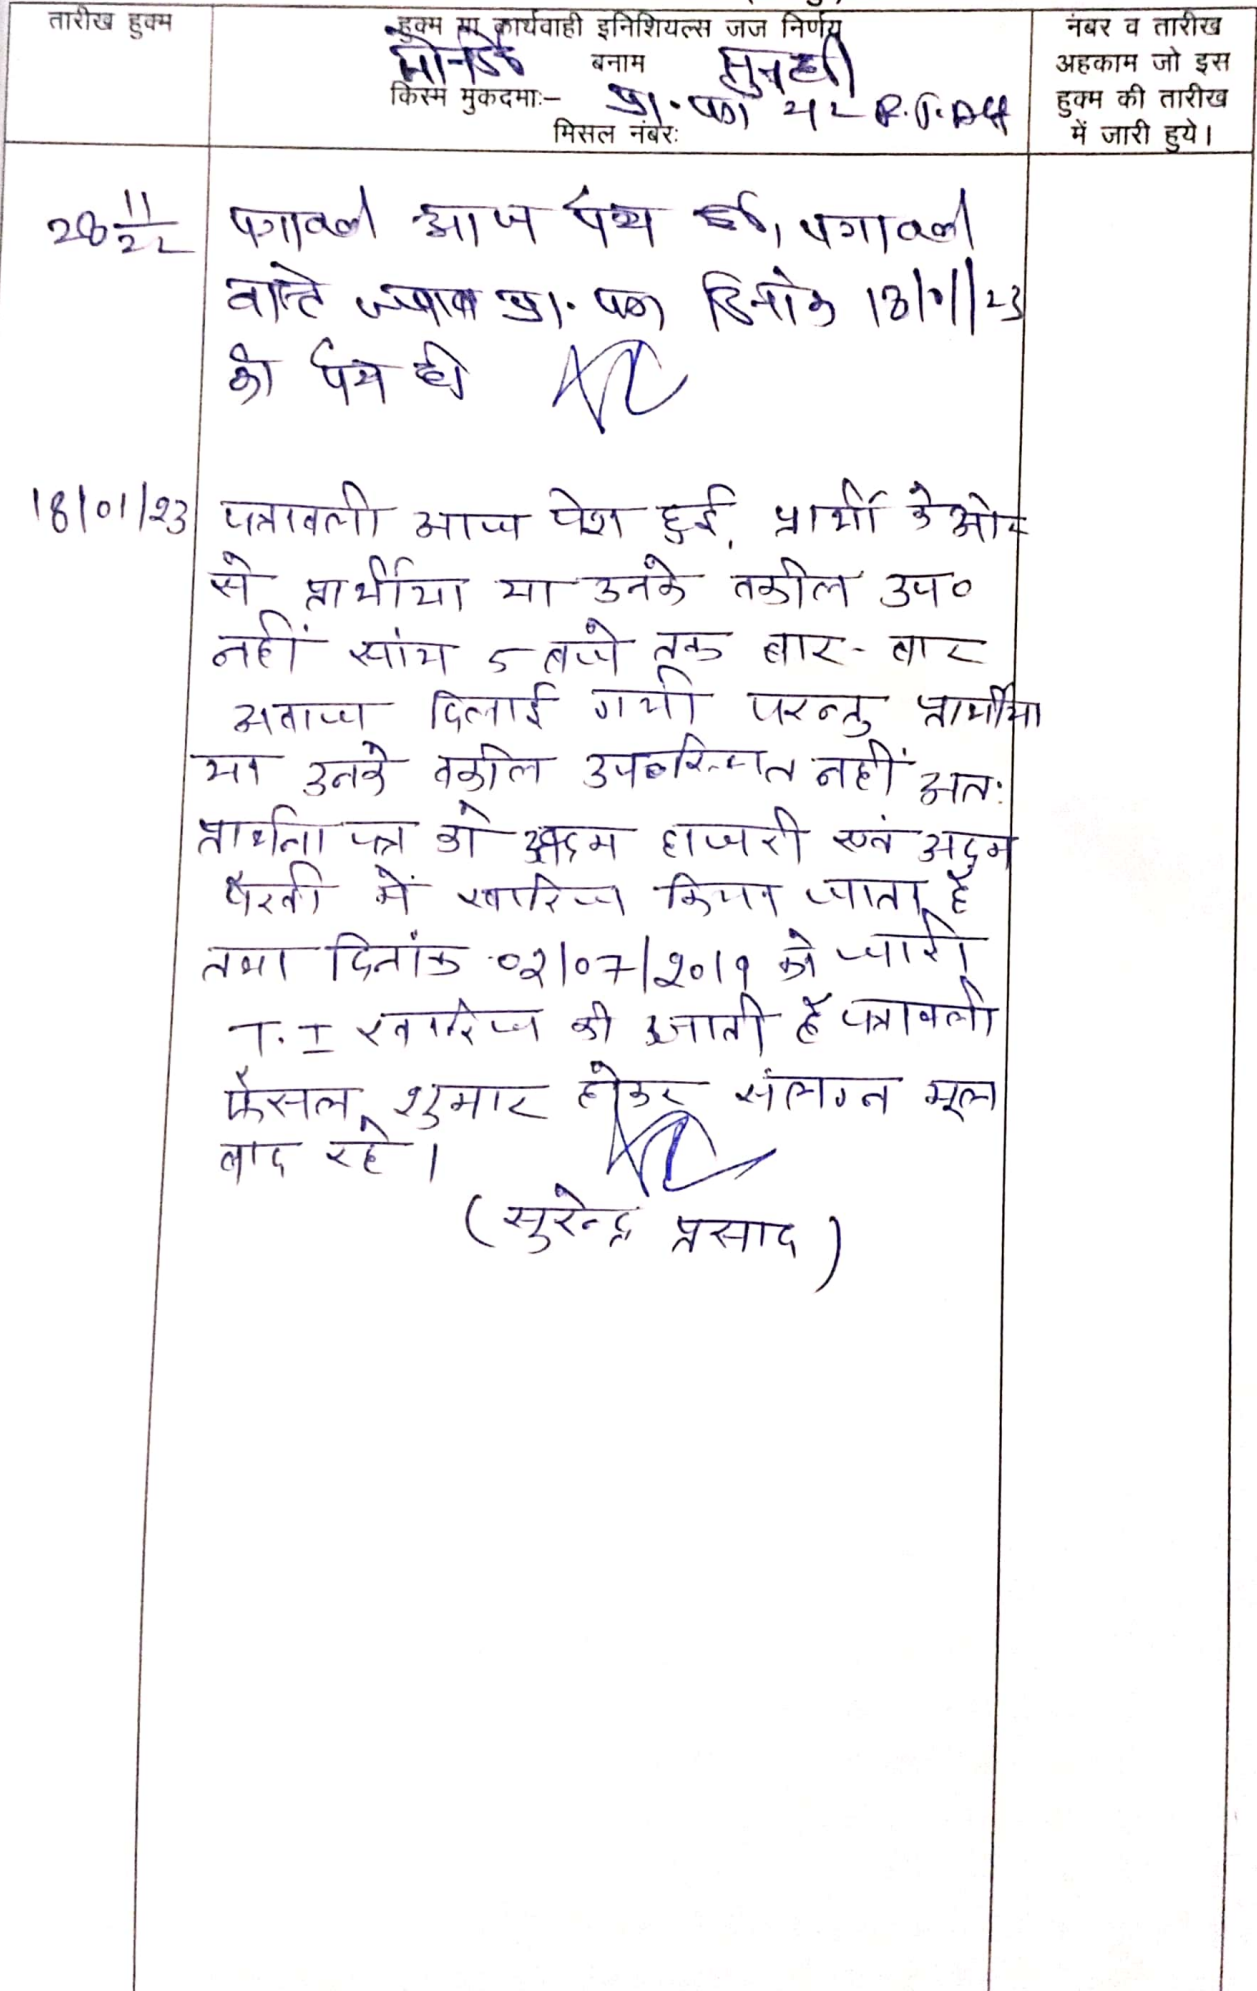 तारीख हुक्म
हुक्म या कार्यवाही इनिशियल्स जज निर्णय
बनाम
किस्म मुकदमाः- प्रा. पत्र 212 R.T.Act
मिसल नंबरः
नंबर व तारीख
अहकाम जो इस
हुक्म की तारीख
में जारी हुये।
28 11/22
पत्रावली आज पेश हुई, पत्रावली
वास्ते जवाब प्रा. पत्र दिनांक 18/1/23
को पेश हो
18/01/23
पत्रावली आज पेश हुई, प्रार्थी के ओर
से प्रार्थीया या उनके वकील उप०
नहीं सांय 5 बजे तक बार-बार
अवाज दिलाई गयी परन्तु प्रार्थीया
या उनके वकील उपस्थित नहीं अतः
प्रार्थना पत्र को अदम हाजरी एवं अदम
पैरवी में खारिज किया जाता है
तथा दिनांक 02/07/2019 को जारी
T.I खारिज की जाती है पत्रावली
फैसल शुमार होकर संलग्न मूल
वाद रहे।
(सुरेन्द्र प्रसाद)